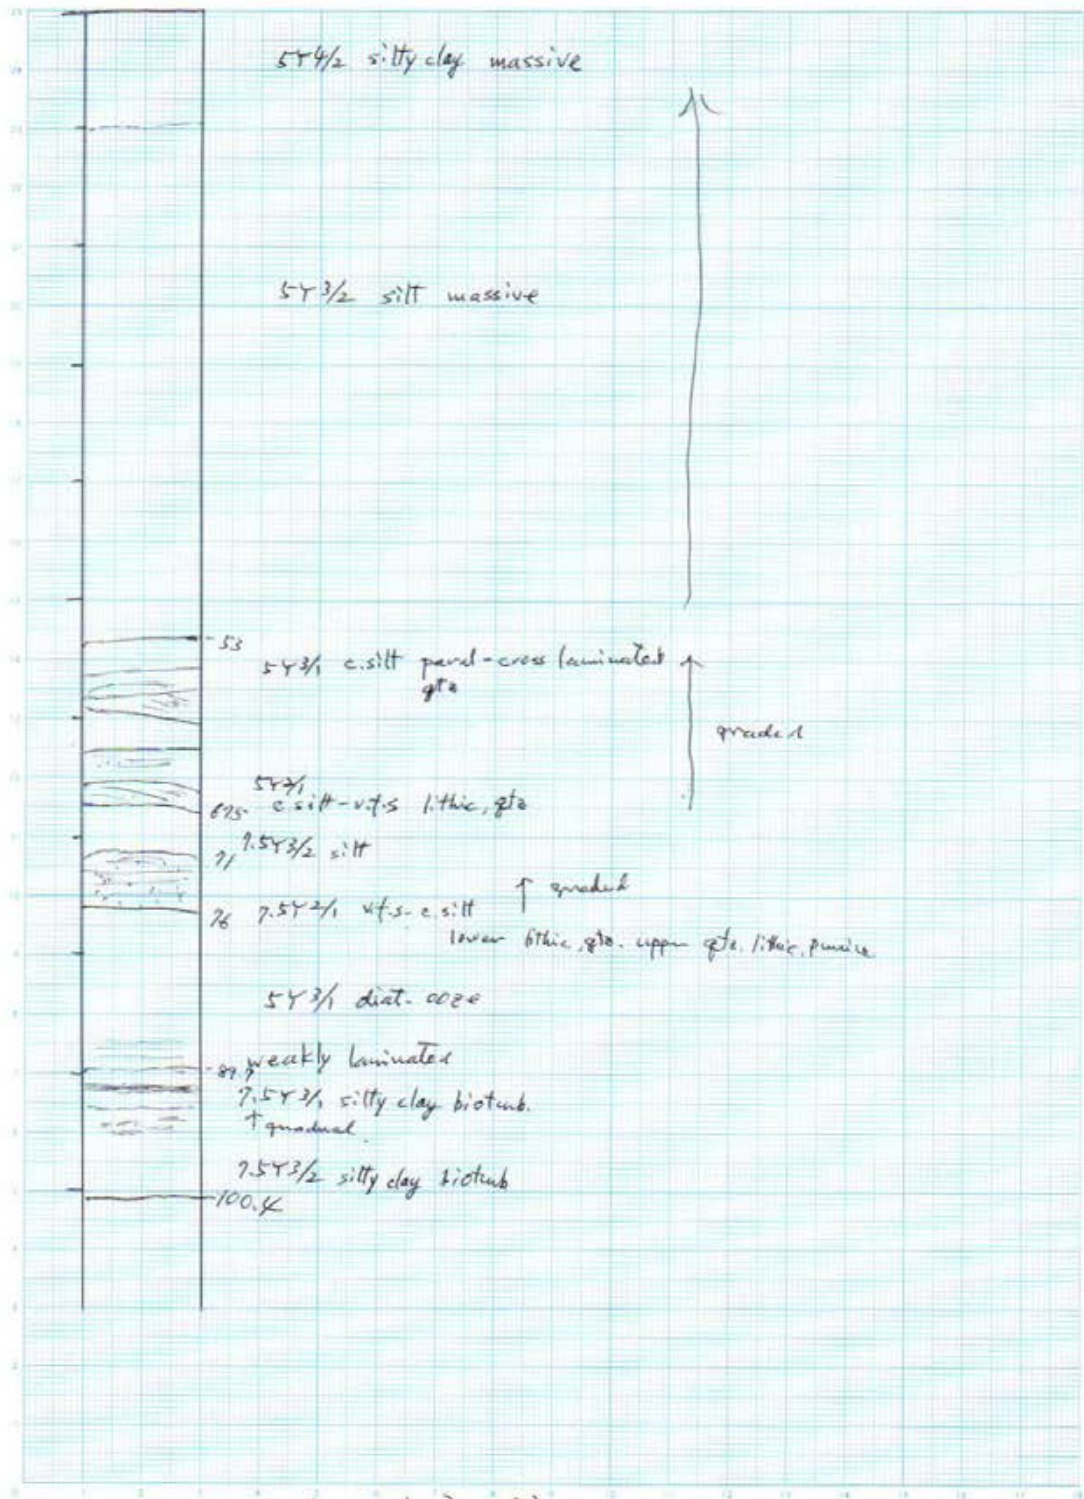 5Y4/2 silty clay massive
5Y3/2 silt massive
53
5Y3/1 c.silt paral-cross laminated
qtz
graded
5Y2/1
67.5 c.silt-v.f.s lithic, qtz
71 7.5Y3/2 silt
graded
76 7.5Y2/1 v.f.s-c.silt
lower lithic, qtz. upper qtz. lithic, pumice
5Y3/1 diat-ooze
weakly laminated
7.5Y3/1 silty clay bioturb.
↑ gradual
7.5Y3/2 silty clay bioturb
100.4